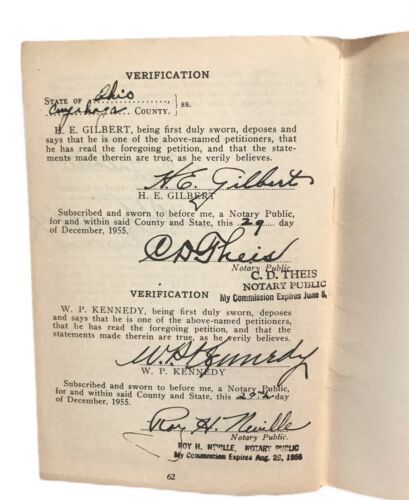 VERIFICATION
STATE OF Ohio ............, } ss.
Cuyahoga COUNTY.
H. E. GILBERT, being first duly sworn, deposes and
says that he is one of the above-named petitioners, that
he has read the foregoing petition, and that the state-
ments made therein are true, as he verily believes.
H.E. Gilbert
H. E. GILBERT
Subscribed and sworn to before me, a Notary Public,
for and within said County and State, this 29 day
of December, 1955.
C D Theis
Notary Public.
C. D. THEIS
NOTARY PUBLIC
My Commission Expires June 5,
VERIFICATION
W. P. KENNEDY, being first duly sworn, deposes
and says that he is one of the above-named petitioners,
that he has read the foregoing petition, and that the
statements made therein are true, as he verily believes.
W.P. Kennedy
W. P. KENNEDY
Subscribed and sworn to before me, a Notary Public,
for and within said County and State, this 28th day
of December, 1955.
Roy H. Neville
Notary Public.
ROY H. NEVILLE, NOTARY PUBLIC
My Commission Expires Aug. 29, 1956
62